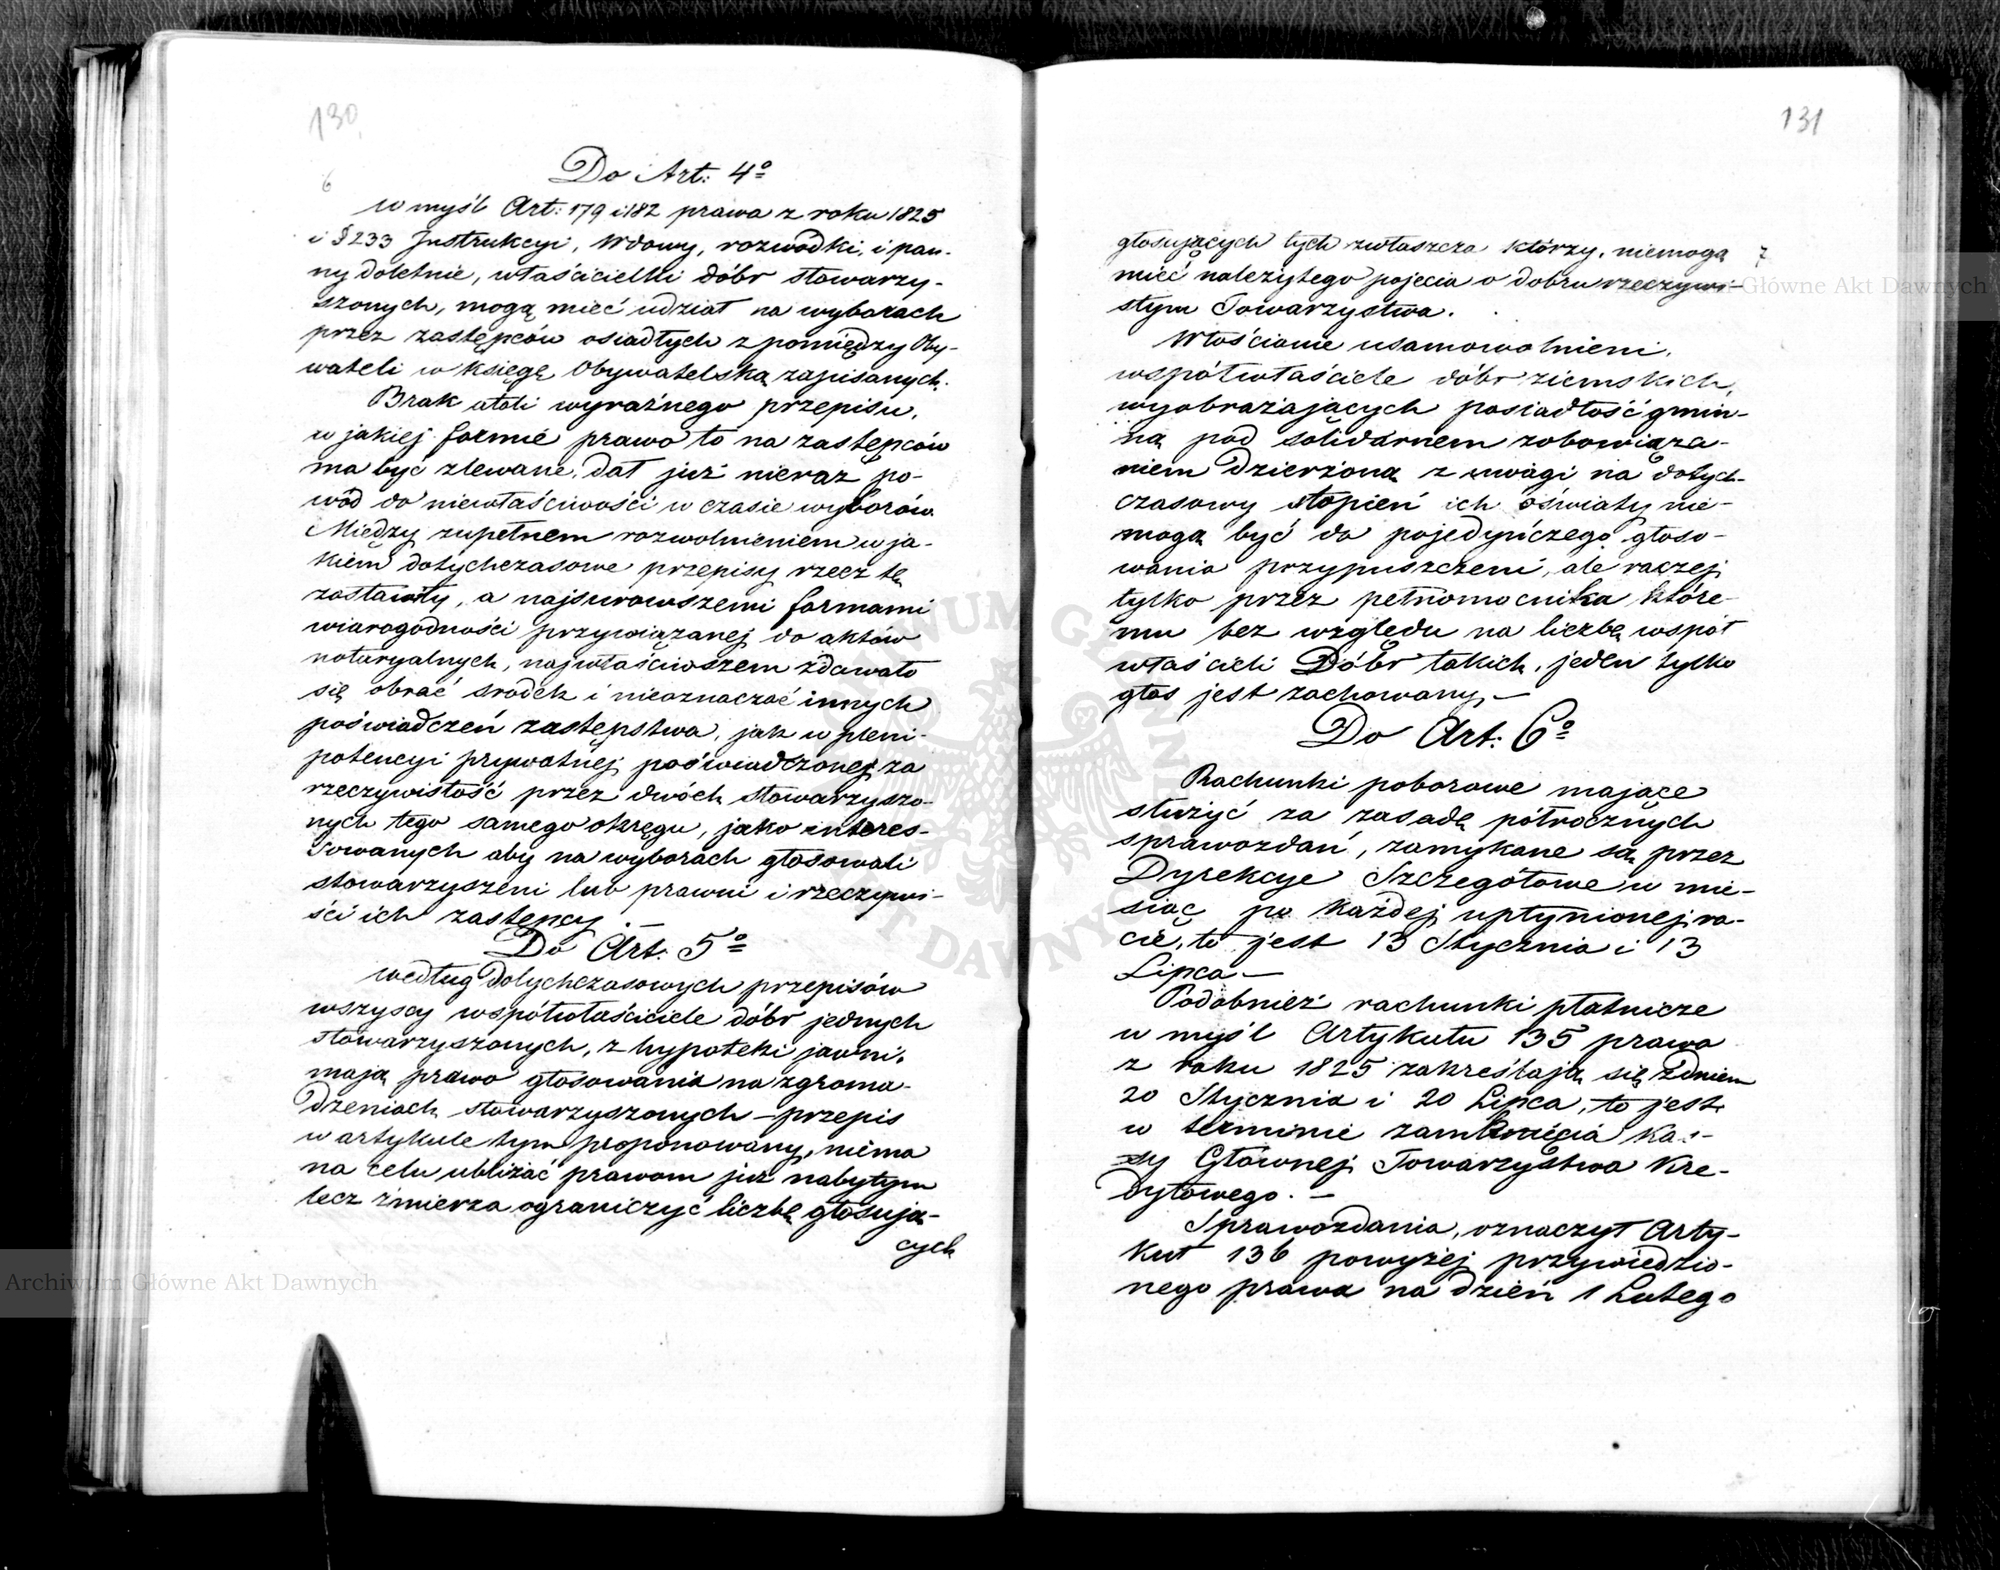 130
6
Do Art: 4º
w myśl Art: 179 i 182 prawa z roku 1825
i §233 Instrukcyi, Wdowy, rozwódki, i pan-
ny doletnie, właścicielki dóbr stowarzy-
szonych, mogą mieć udział na wyborach
przez zastępców osiadłych z pomiędzy Oby-
wateli w księgę Obywatelską zapisanych.
Brak atoli wyraźnego przepisu,
w jakiej formie prawo to na zastępców
ma być zlewane, dał już nieraz po-
wód do niewłaściwości w czasie wyborów.
Między zupełnem rozwolnieniem w ja-
kiem dotychczasowe przepisy rzecz tę
zostawiły, a najsurowszemi formami
wiarogodności przywiązanej do aktów
notaryalnych, najwłaściwszem zdawało
się obrać srodek i nieoznaczać innych
poświadczeń zastępstwa, jak w pleni-
potencyi prywatnej poświadczonej za
rzeczywistość przez dwóch stowarzyszo-
nych tego samego okręgu, jako interes-
sowanych aby na wyborach głosowali
stowarzyszeni lub prawni i rzeczywi-
ści ich zastępcy. —
Do Art. 5º
według dotychczasowych przepisów
wszyscy współwłaściciele dóbr jednych
stowarzyszonych, z hypoteki jawni,
mają prawo głosowania na zgroma-
dzeniach stowarzyszonych — przepis
w artykule tym proponowany, niema
na celu ubliżać prawom już nabytym
lecz zmierza ograniczyć liczbę głosują-
cych
131
7
głosujących tych zwłaszcza którzy, niemogą
mieć należytego pojęcia o dobru rzeczywi-
stym Towarzystwa.
Włościanie usamowolnieni,
współwłaściciele dóbr ziemskich,
wyobrażających posiadłość gmin-
ną pod solidarnem zobowiąza-
niem dzierżoną z uwagi na dotych-
czasowy stopień ich oświaty nie-
mogą być do pojedyńczego głoso-
wania przypuszczeni, ale raczej
tylko przez pełnomocnika które-
mu bez względu na liczbę współ
właścicieli Dóbr takich, jeden tylko
głos jest zachowany, —
Do Art: 6º
Rachunki poborowe mające
służyć za zasadę półrocznych
sprawozdań, zamykane są przez
Dyrekcye Szczegółowe w mie-
siąc po każdej upłynionej ra-
cie, to jest 13 Stycznia i 13
Lipca —
Podobnież rachunki płatnicze
w myśl Artykułu 135 prawa
z roku 1825 zakreślają się z dniem
20 Stycznia i 20 Lipca, to jest
w terminie zamknięcia Kas-
sy Głównej Towarzystwa Kre-
dytowego. —
Sprawozdania, oznaczył Arty-
kuł 136 powyżej przywiedzio-
nego prawa na dzień 1 Lutego
Archiwum Główne Akt Dawnych
Główne Akt Dawnych